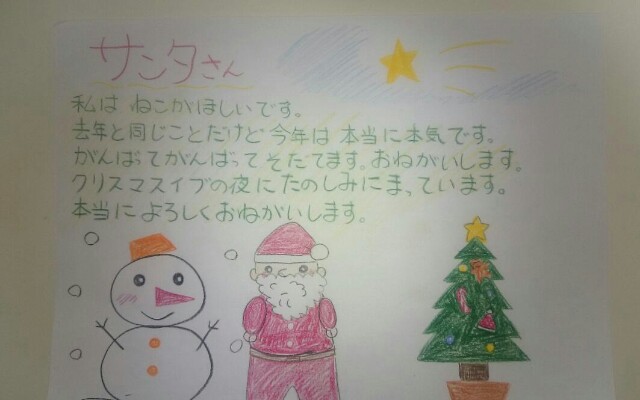 サンタさん
私は ねこがほしいです。
去年と同じことだけど今年は 本当に本気です。
がんばってがんばってそだてます。おねがいします。
クリスマスイブの夜に たのしみにまっています。
本当によろしくおねがいします。